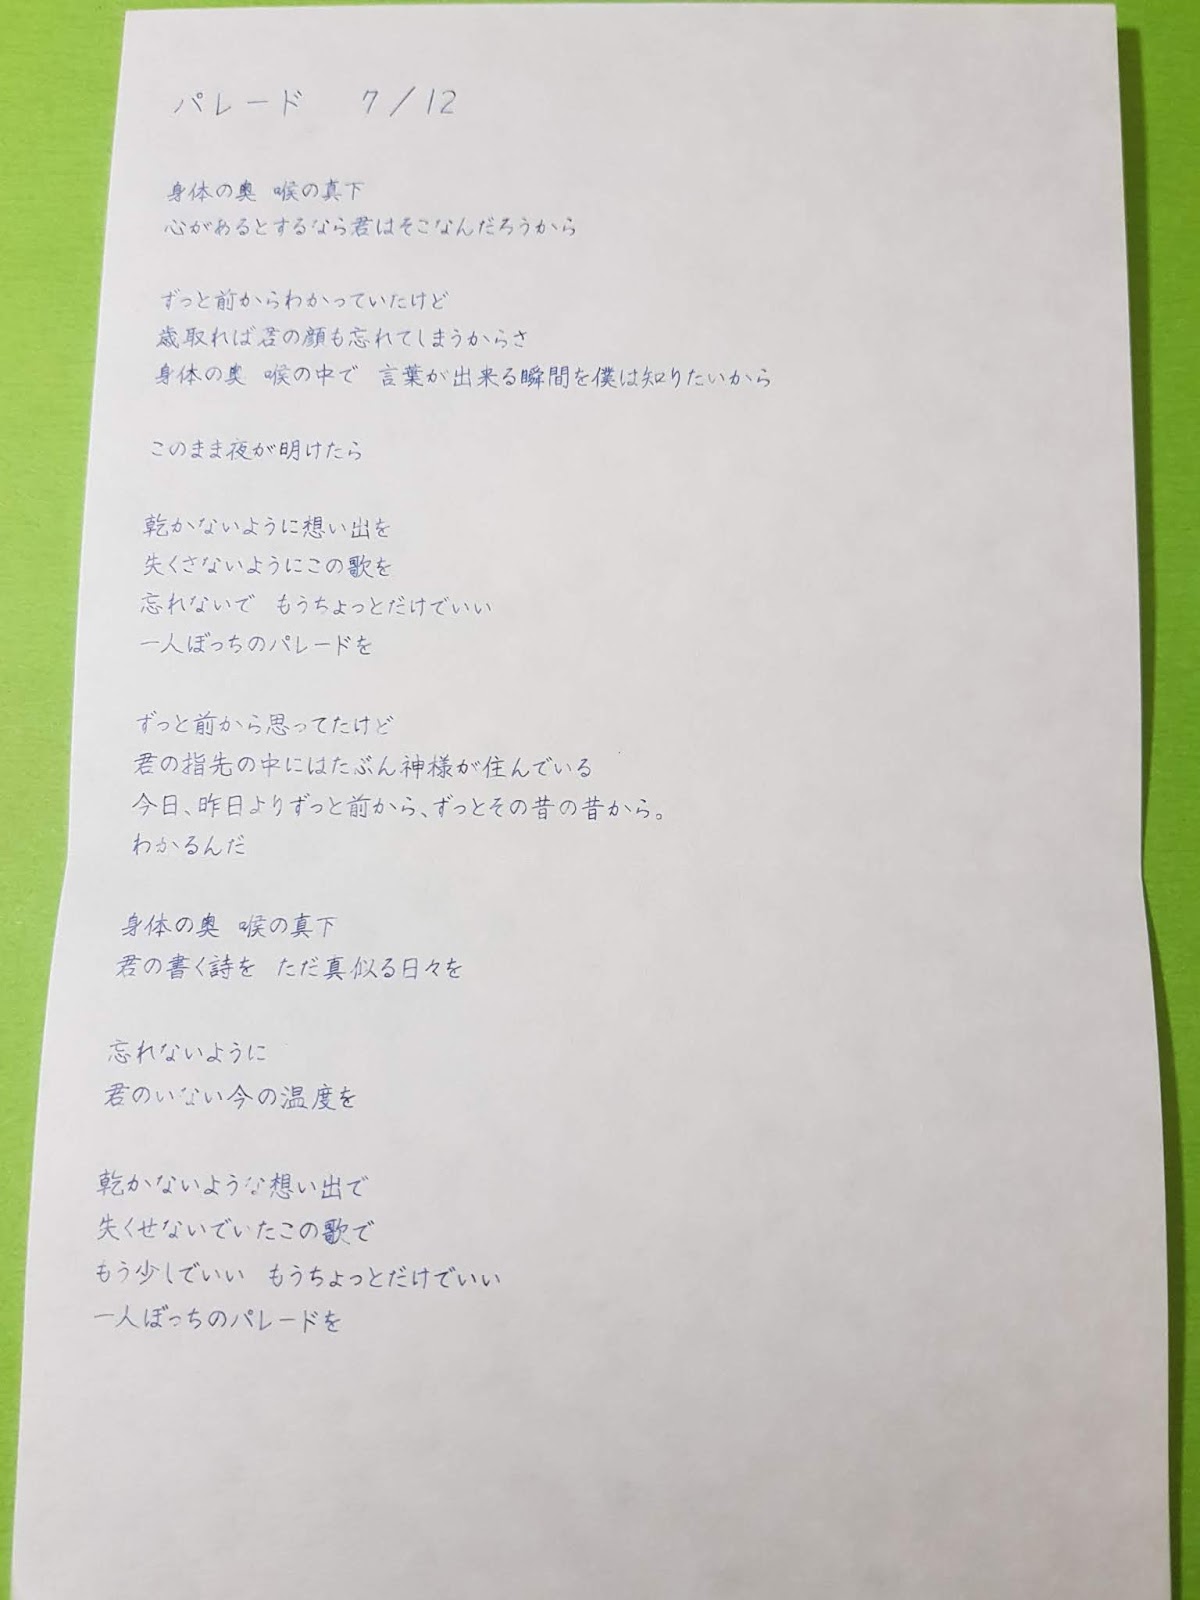 パレード　7/12
身体の奥 喉の真下
心があるとするなら君はそこなんだろうから
ずっと前からわかっていたけど
歳取れば君の顔も忘れてしまうからさ
身体の奥 喉の中で 言葉が出来る瞬間を僕は知りたいから
このまま夜が明けたら
乾かないように想い出を
失くさないようにこの歌を
忘れないで もうちょっとだけでいい
一人ぼっちのパレードを
ずっと前から思ってたけど
君の指先の中にはたぶん神様が住んでいる
今日、昨日よりずっと前から、ずっとその昔の昔から。
わかるんだ
身体の奥 喉の真下
君の書く詩を ただ真似る日々を
忘れないように
君のいない今の温度を
乾かないような想い出で
失くせないでいたこの歌で
もう少しでいい もうちょっとだけでいい
一人ぼっちのパレードを